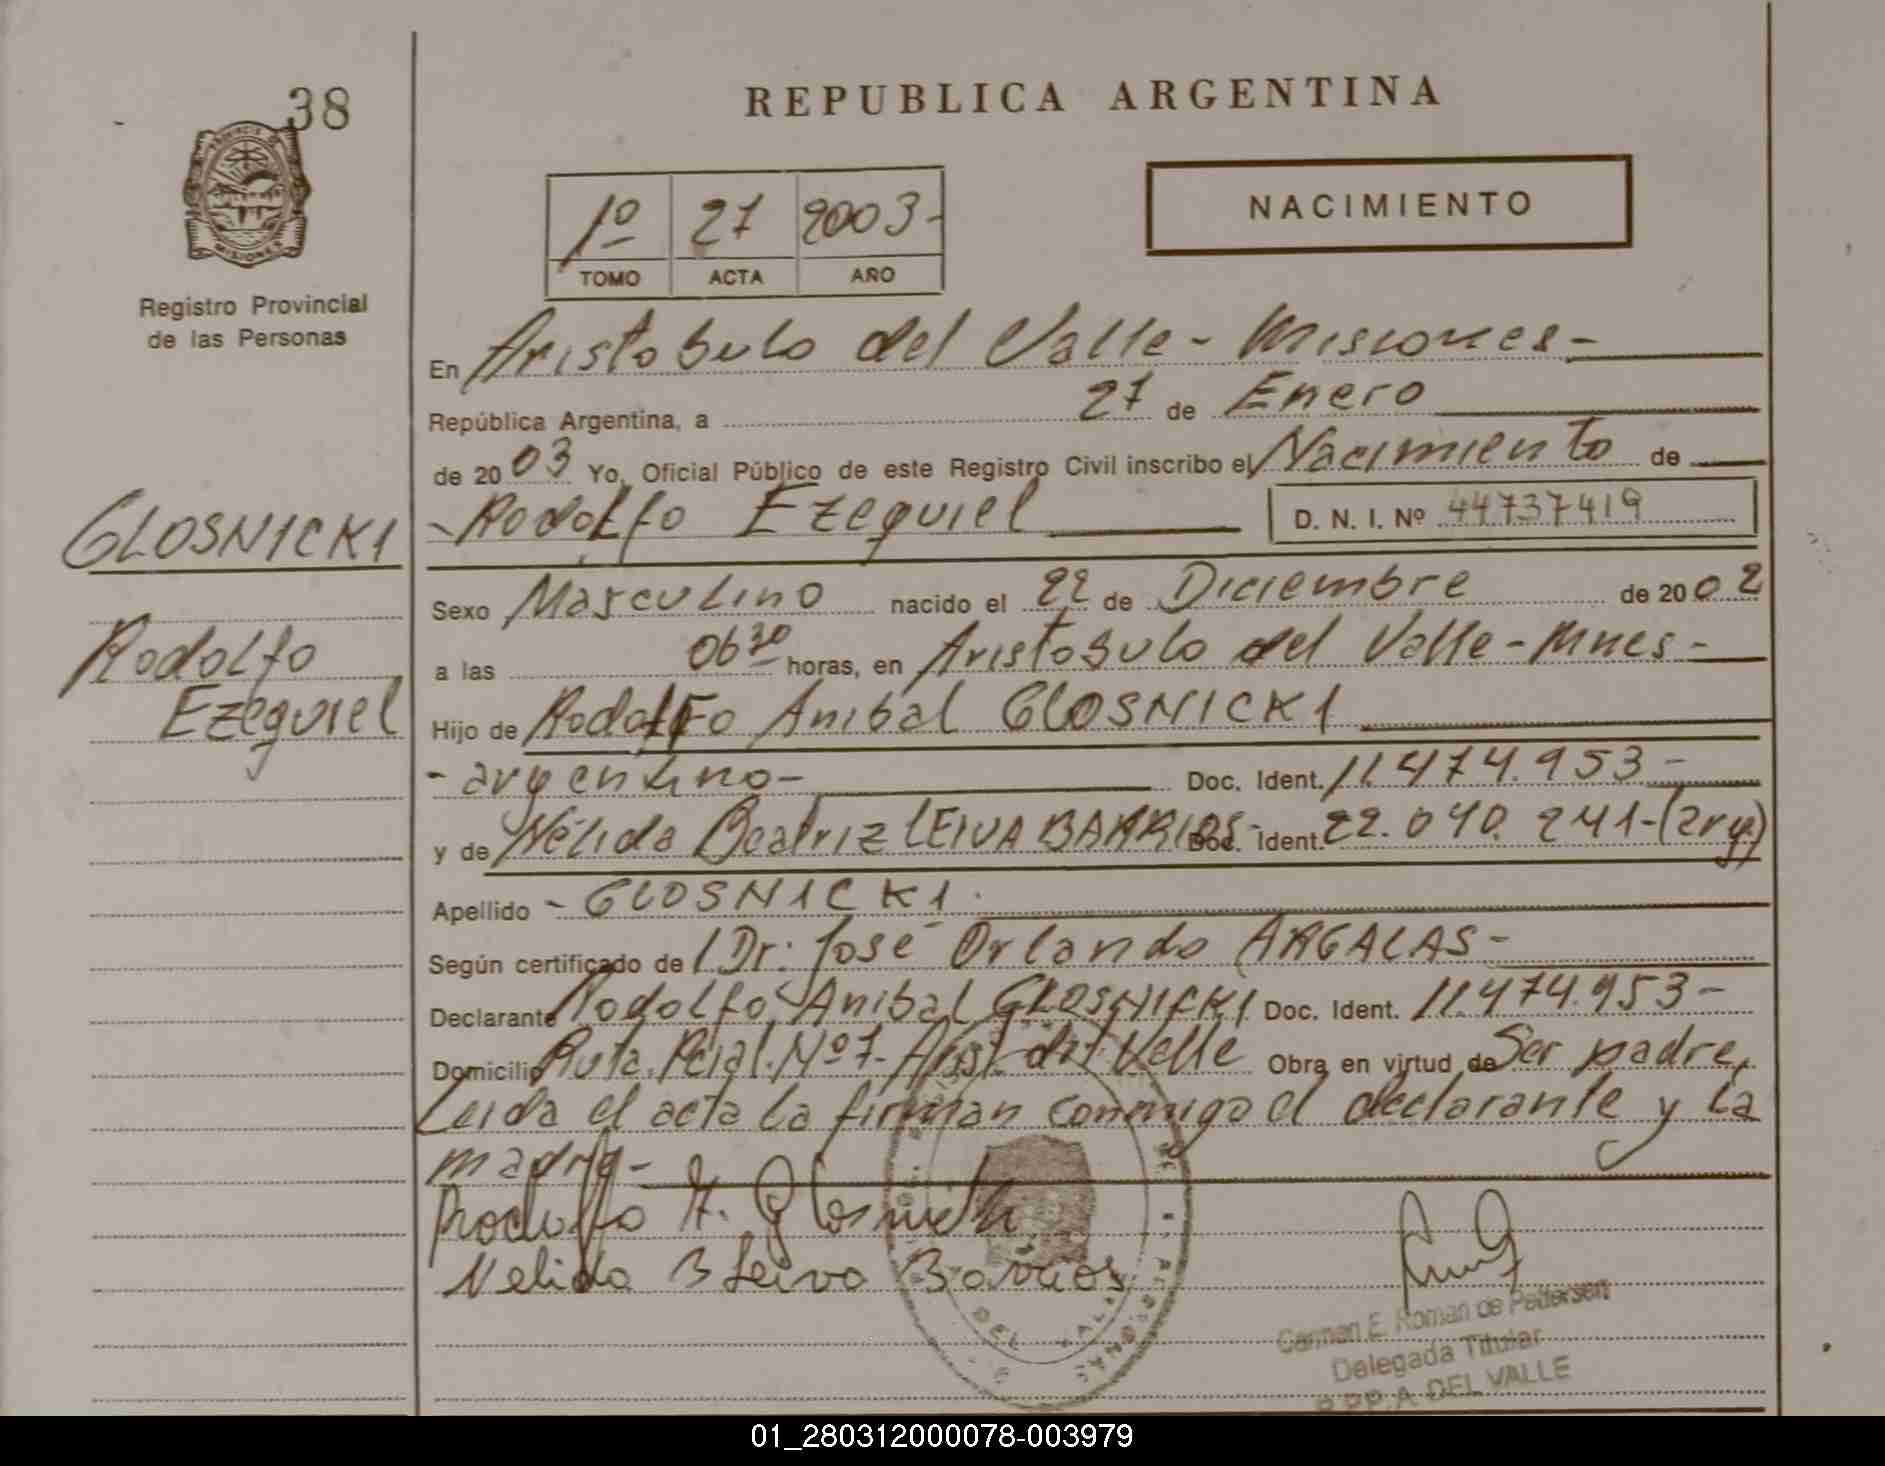 38
PROVINCIA DE
MISIONES
Registro Provincial
de las Personas
GLOSNICKI
Rodolfo
Ezequiel
REPUBLICA ARGENTINA
1º 27 2003-
TOMO ACTA AÑO
NACIMIENTO
En Aristobulo del Valle - Misiones -
República Argentina, a 27 de Enero
de 2003 Yo, Oficial Público de este Registro Civil inscribo el Nacimiento de
- Rodolfo Ezequiel D. N. I. Nº 44737419
Sexo Masculino nacido el 22 de Diciembre de 2002
a las 06 30 horas, en Aristobulo del Valle - Mnes -
Hijo de Rodolfo Anibal GLOSNICKI
- argentino - Doc. Ident. 11.474.953 -
y de Nélida Beatriz LEIVA BARRIOS - Doc. Ident. 22.040.241-(arg.)
Apellido - GLOSNICKI.
Según certificado de l Dr: José Orlando ARGALAS -
Declarante Rodolfo Anibal GLOSNICKI Doc. Ident. 11.474.953 -
Domicilio Ruta Pcial. Nº 7- Arist. del Valle Obra en virtud de Ser padre,
Leida el acta la firman conmigo el declarante y la
madre -
Rodolfo A. Glosnicki
Nelida B Leiva Barrios
DEL VALLE
Carmen E. Roman de Pedersen
Delegada Titular
R.P.P. A. DEL VALLE
01_280312000078-003979